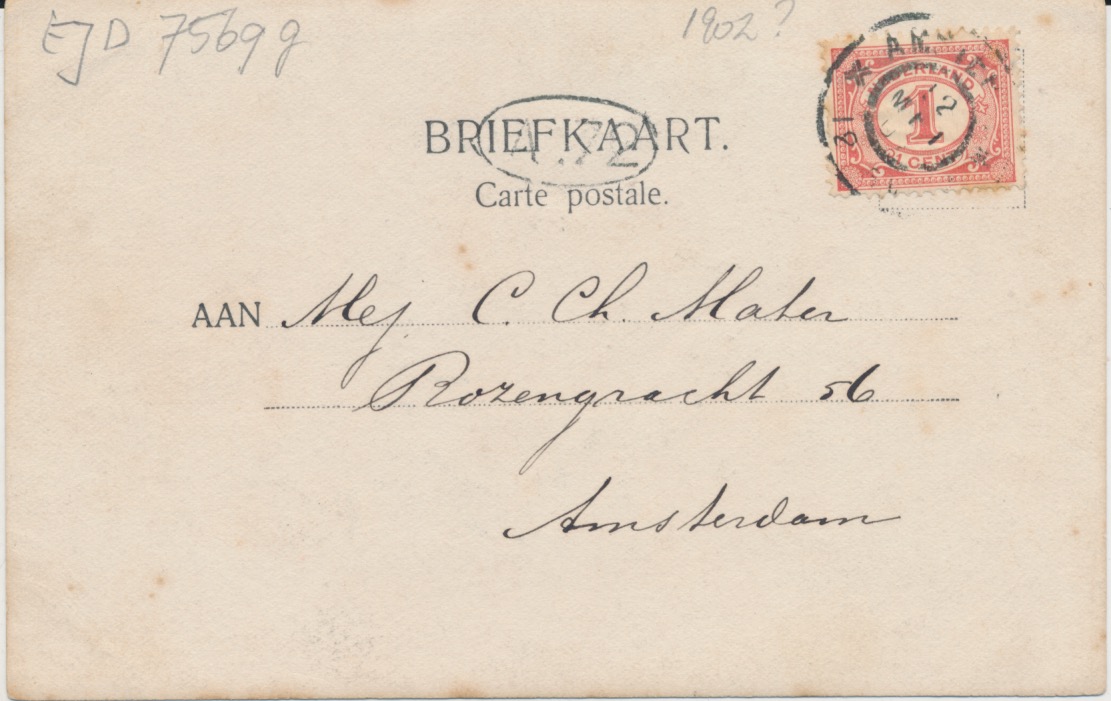 EJD 7569 g
1902?
BRIEFKAART.
A.72
Carte postale.
NEDERLAND
1
1 CENT
AAN Mej. C. Ch. Mater
Rozengracht 56
Amsterdam